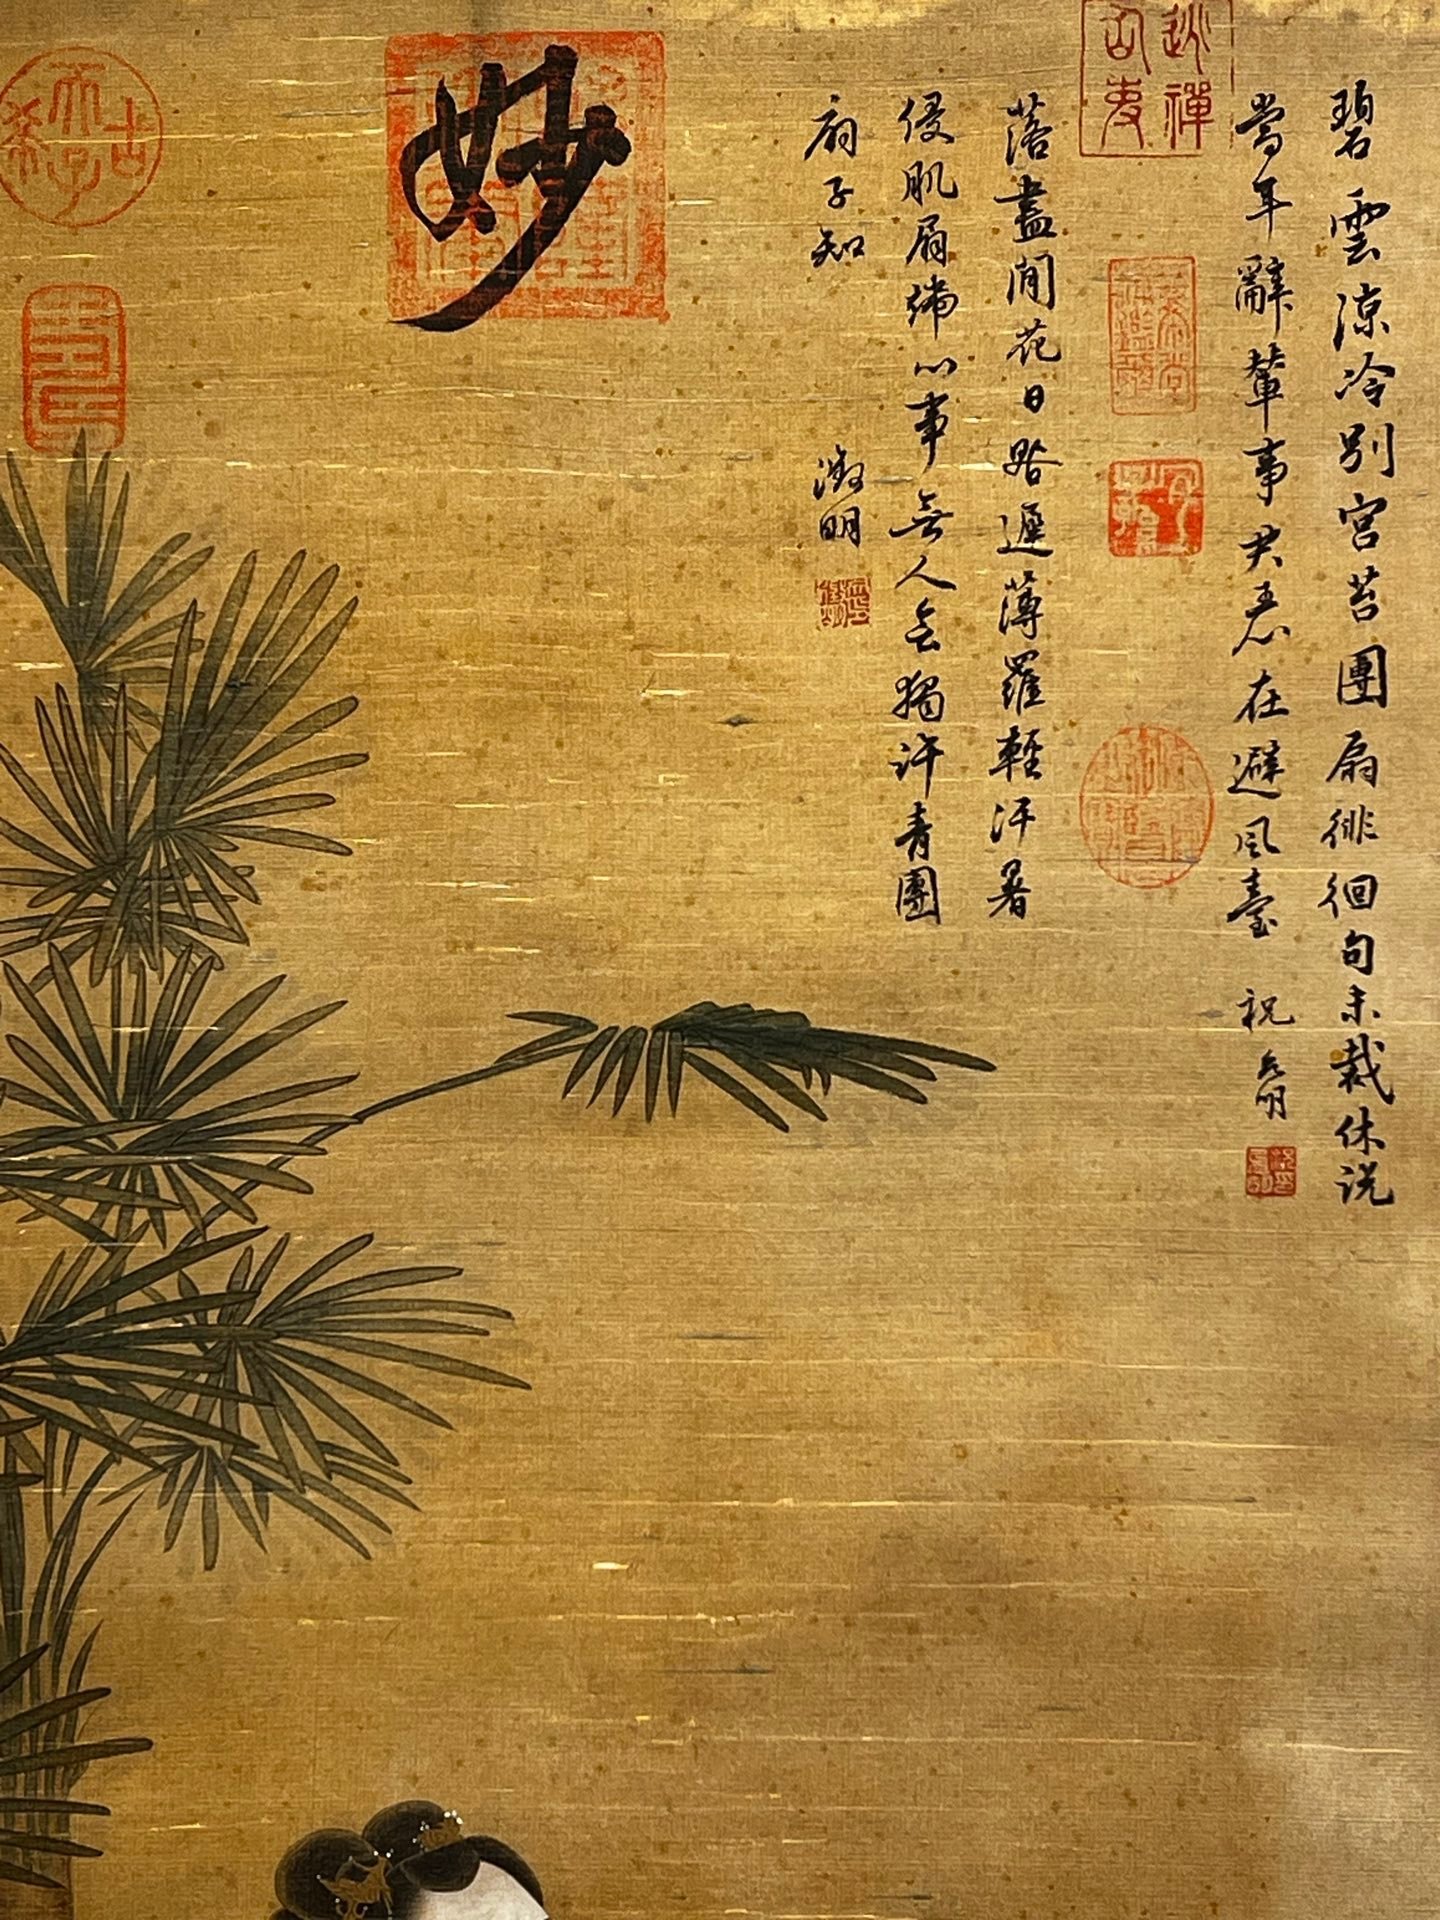 碧雲涼冷別宮苔團扇徘徊句未裁休說
當年辭輦事君王心在避風臺 祝允明
落盡閒花日晷遲薄羅輕汗暑
侵肌眉端心事無人會獨許青團
扇子知 徵明
妙
古希天子